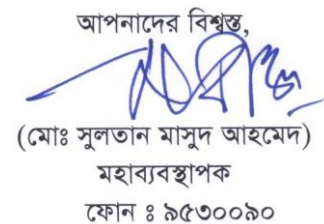 আপনাদের বিশ্বস্ত,
(মোঃ সুলতান মাসুদ আহমেদ)
মহাব্যবস্থাপক
ফোন ঃ ৯৫৩০০৯০